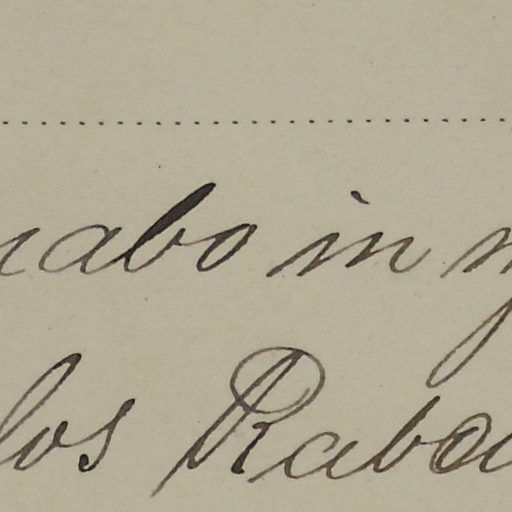 nabo in
los Rabou